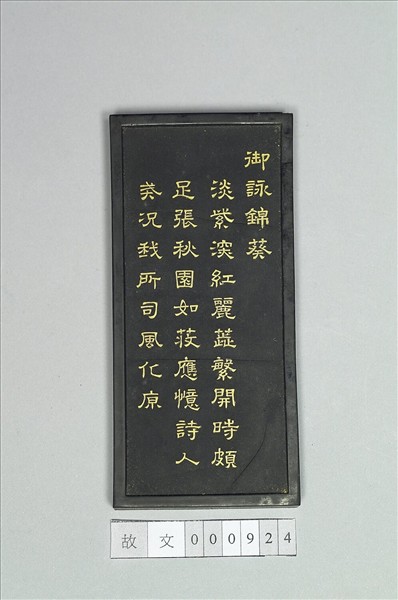 御詠錦葵
淡紫深紅麗蕋繁開時頗
足張秋園如荍應憶詩人
美況我所司風化原
故文000924